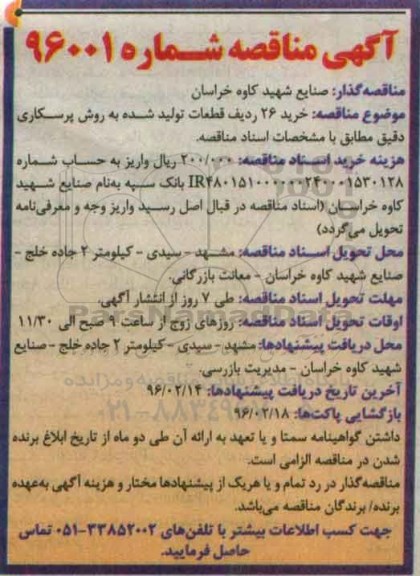 آگهی مناقصه شماره ۹۶۰۰۱
مناقصه‌گذار: صنایع شهید کاوه خراسان
موضوع مناقصه: خرید ۲۶ ردیف قطعات تولید شده به روش پرسکاری
دقیق مطابق با مشخصات اسناد مناقصه.
هزینه خرید اسناد مناقصه: ۲۰۰/۰۰۰ ریال واریز به حساب شماره
بانک سپه به‌نام صنایع شهید
کاوه خراسان (اسناد مناقصه در قبال اصل رسید واریز وجه و معرفی‌نامه
تحویل می‌گردد)
محل تحویل اسناد مناقصه: مشهد - سیدی - کیلومتر ۲ جاده خلج -
صنایع شهید کاوه خراسان - معاونت بازرگانی.
مهلت تحویل اسناد مناقصه: طی ۷ روز از انتشار آگهی.
اوقات تحویل اسناد مناقصه: روزهای زوج از ساعت ۹ صبح الی ۱۱/۳۰
محل دریافت پیشنهادها: مشهد - سیدی - کیلومتر ۲ جاده خلج - صنایع
شهید کاوه خراسان - مدیریت بازرسی.
آخرین تاریخ دریافت پیشنهادها: ۹۶/۰۲/۱۴
بازگشایی پاکت‌ها: ۹۶/۰۲/۱۸
داشتن گواهینامه سمتا و یا تعهد به ارائه آن طی دو ماه از تاریخ ابلاغ برنده
شدن در مناقصه الزامی است.
مناقصه‌گذار در رد تمام و یا هریک از پیشنهادها مختار و هزینه آگهی به‌عهده
برنده/ برندگان مناقصه می‌باشد.
جهت کسب اطلاعات بیشتر با تلفن‌های ۳۳۸۵۲۰۰۲-۰۵۱ تماس
حاصل فرمایید.
ParsNamadData